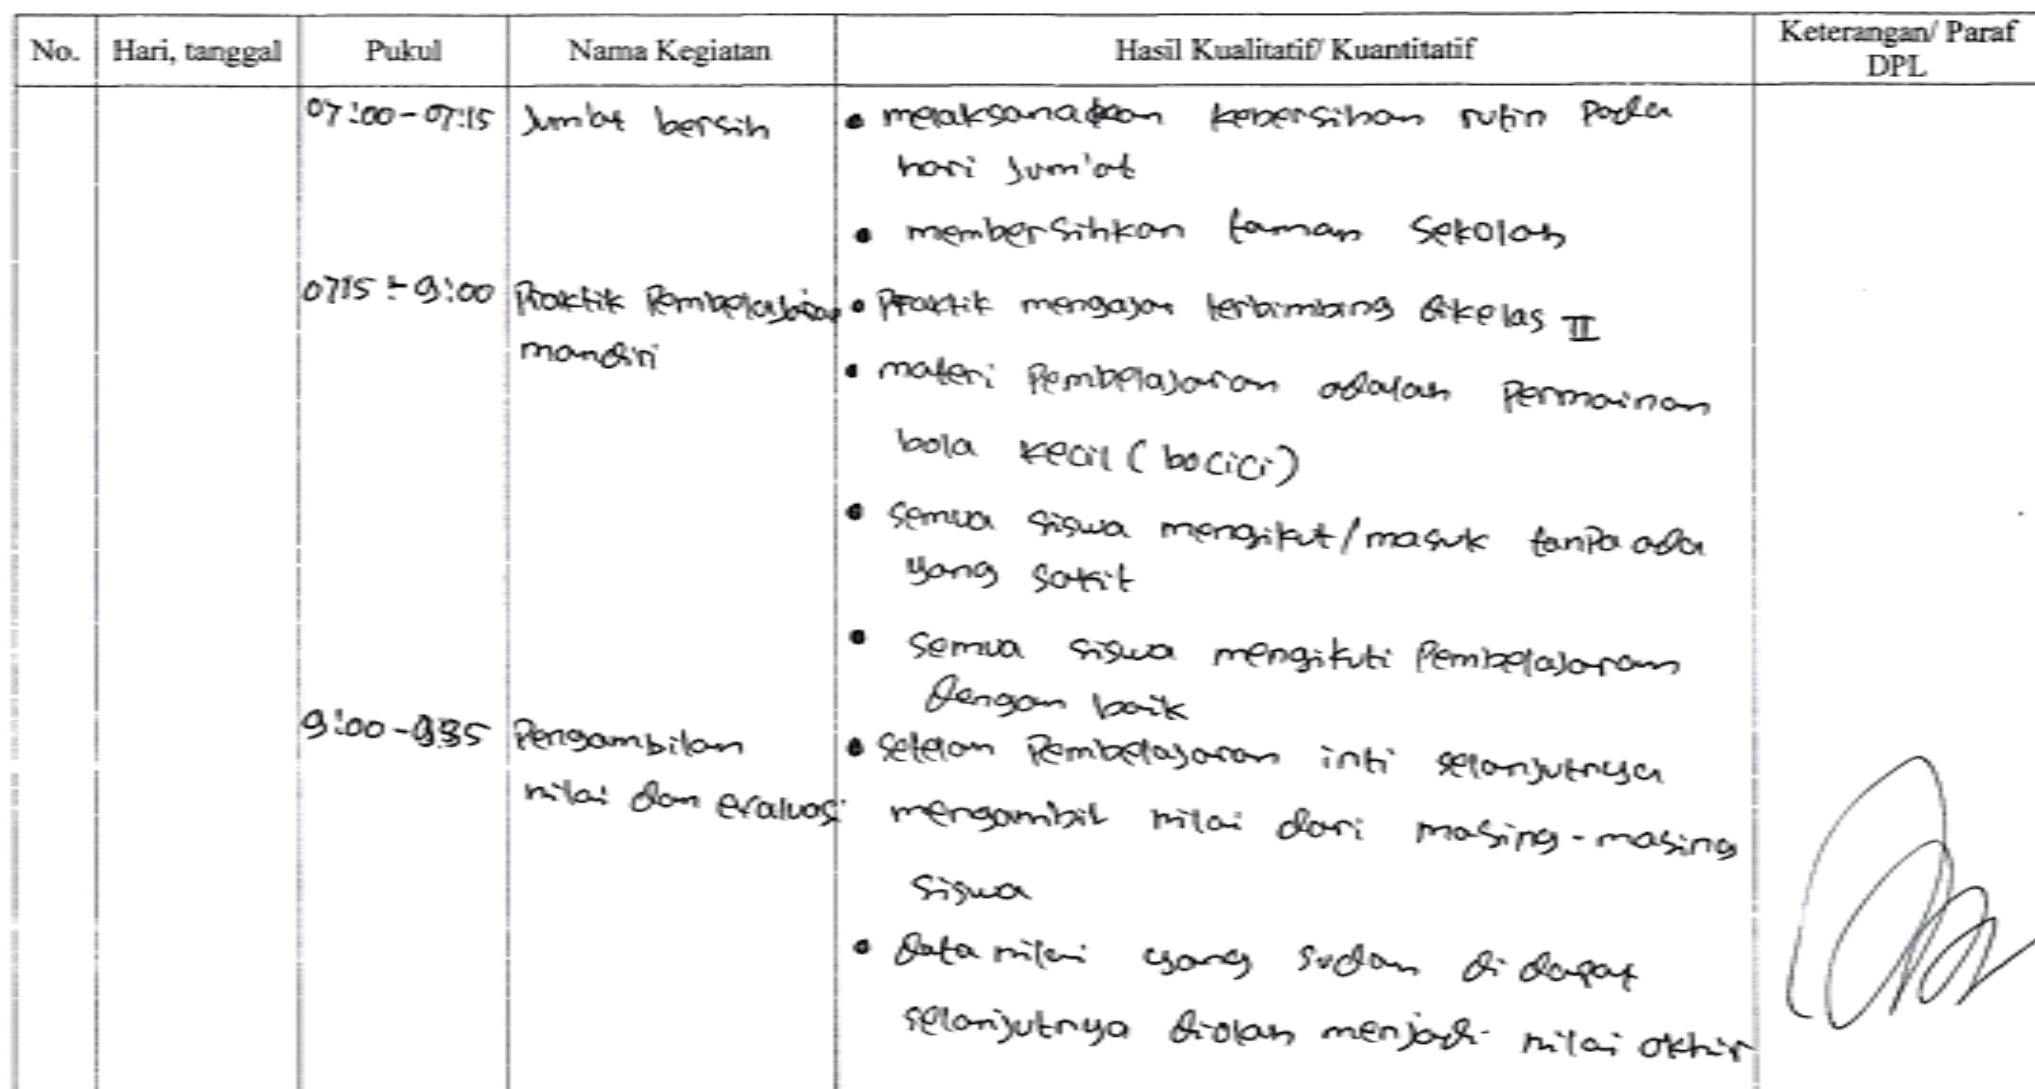 No. Hari, tanggal Pukul Nama Kegiatan Hasil Kualitatif/ Kuantitatif Keterangan/ Paraf DPL
07:00-07:15 Jum'at bersih • melaksanakan kebersihan rutin pada
hari Jum'at
• membersihkan taman sekolah
0715 - 9:00 Praktik Pembelajaran • Praktik mengajar terbimbing dikelas II
mandiri
• materi Pembelajaran adalah Permainan
bola kecil (bocici)
• semua siswa mengikut/masuk tanpa ada
yang sakit
• semua siswa mengikuti Pembelajaran
dengan baik
9:00-935 Pengambilan • setelah Pembelajaran inti selanjutnya
nilai dan evaluasi mengambil nilai dari masing-masing
siswa
• data nilai yang sudah di dapat
selanjutnya diolah menjadi nilai akhir